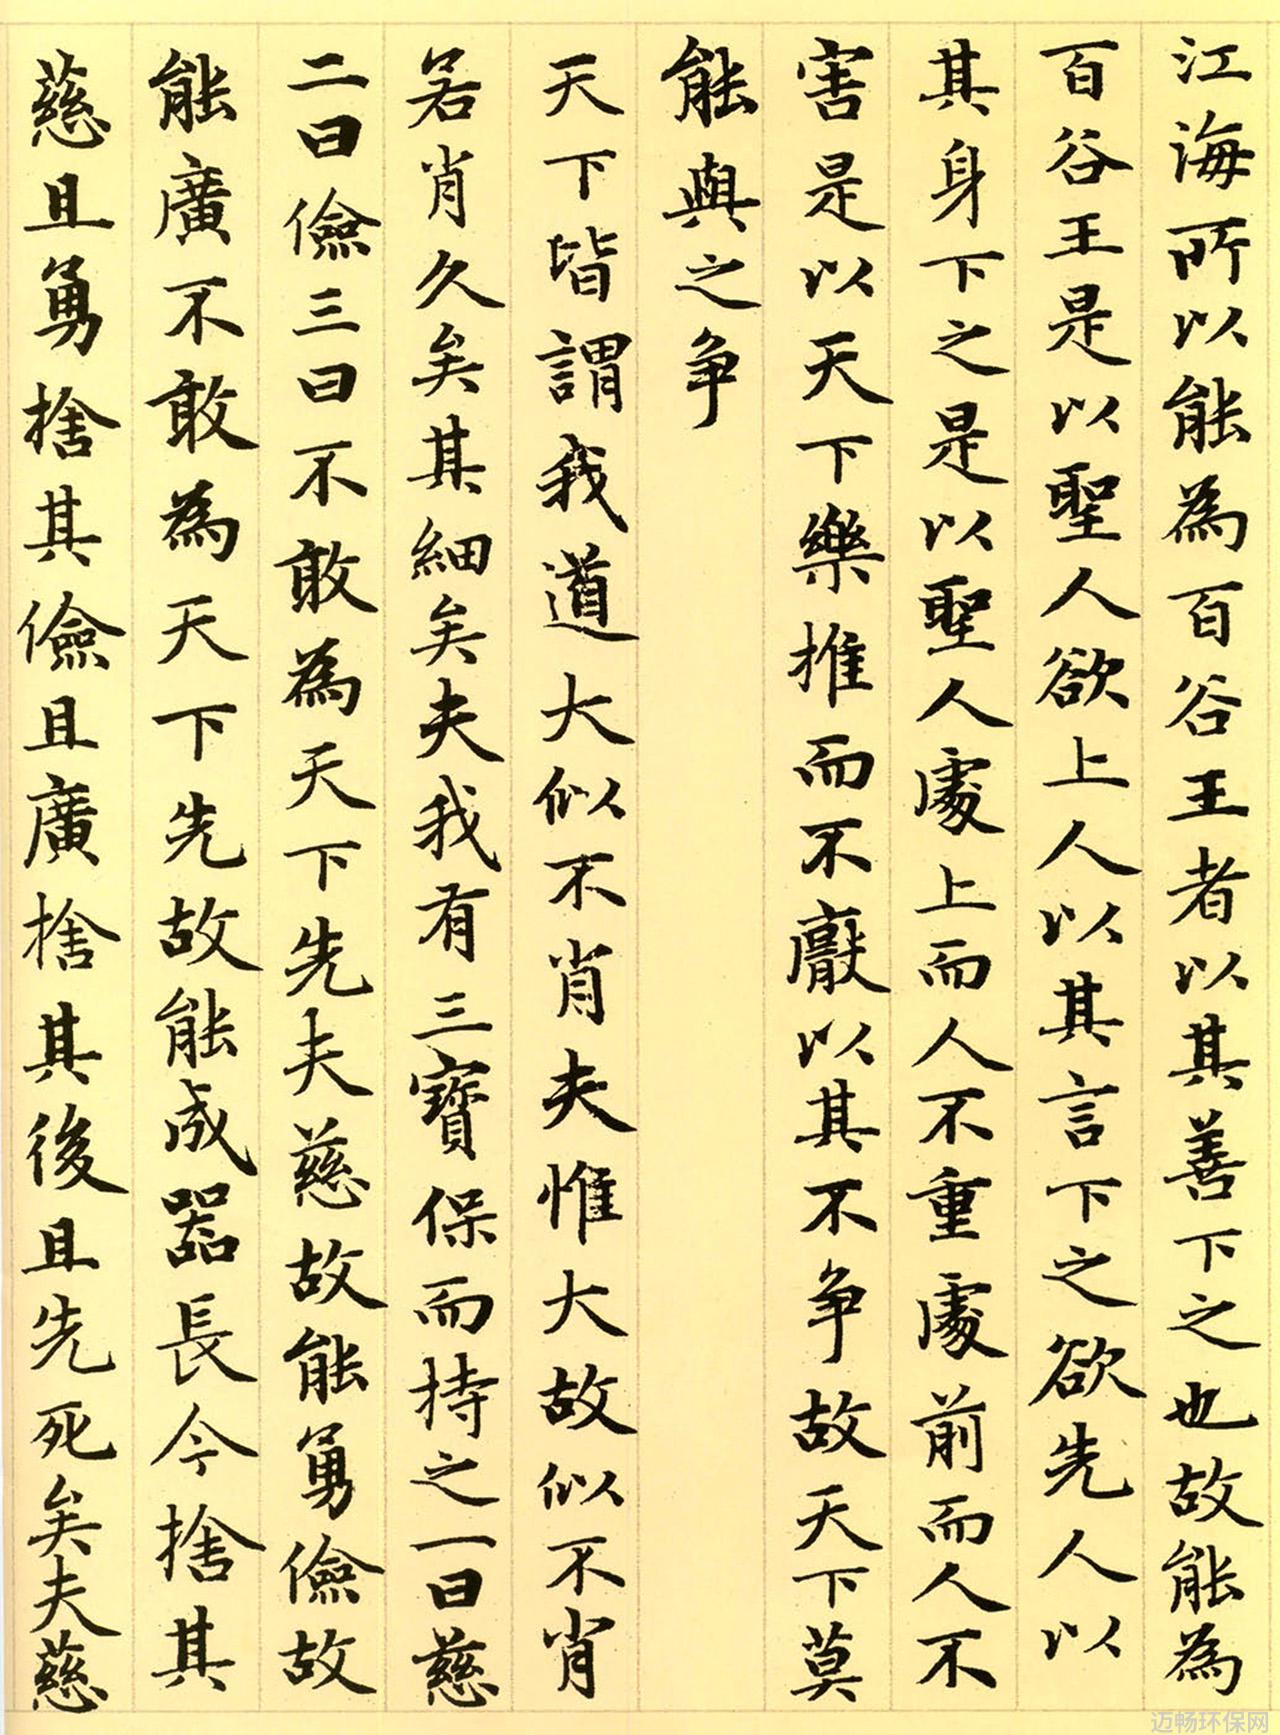 江海所以能為百谷王者以其善下之也故能為
百谷王是以聖人欲上人以其言下之欲先人以
其身下之是以聖人處上而人不重處前而人不
害是以天下樂推而不厭以其不爭故天下莫
能與之爭
天下皆謂我道大似不肖夫惟大故似不肖
若肖久矣其細矣夫我有三寶保而持之一曰慈
二曰儉三曰不敢為天下先夫慈故能勇儉故
能廣不敢為天下先故能成器長今捨其
慈且勇捨其儉且廣捨其後且先死矣夫慈
迈畅环保网